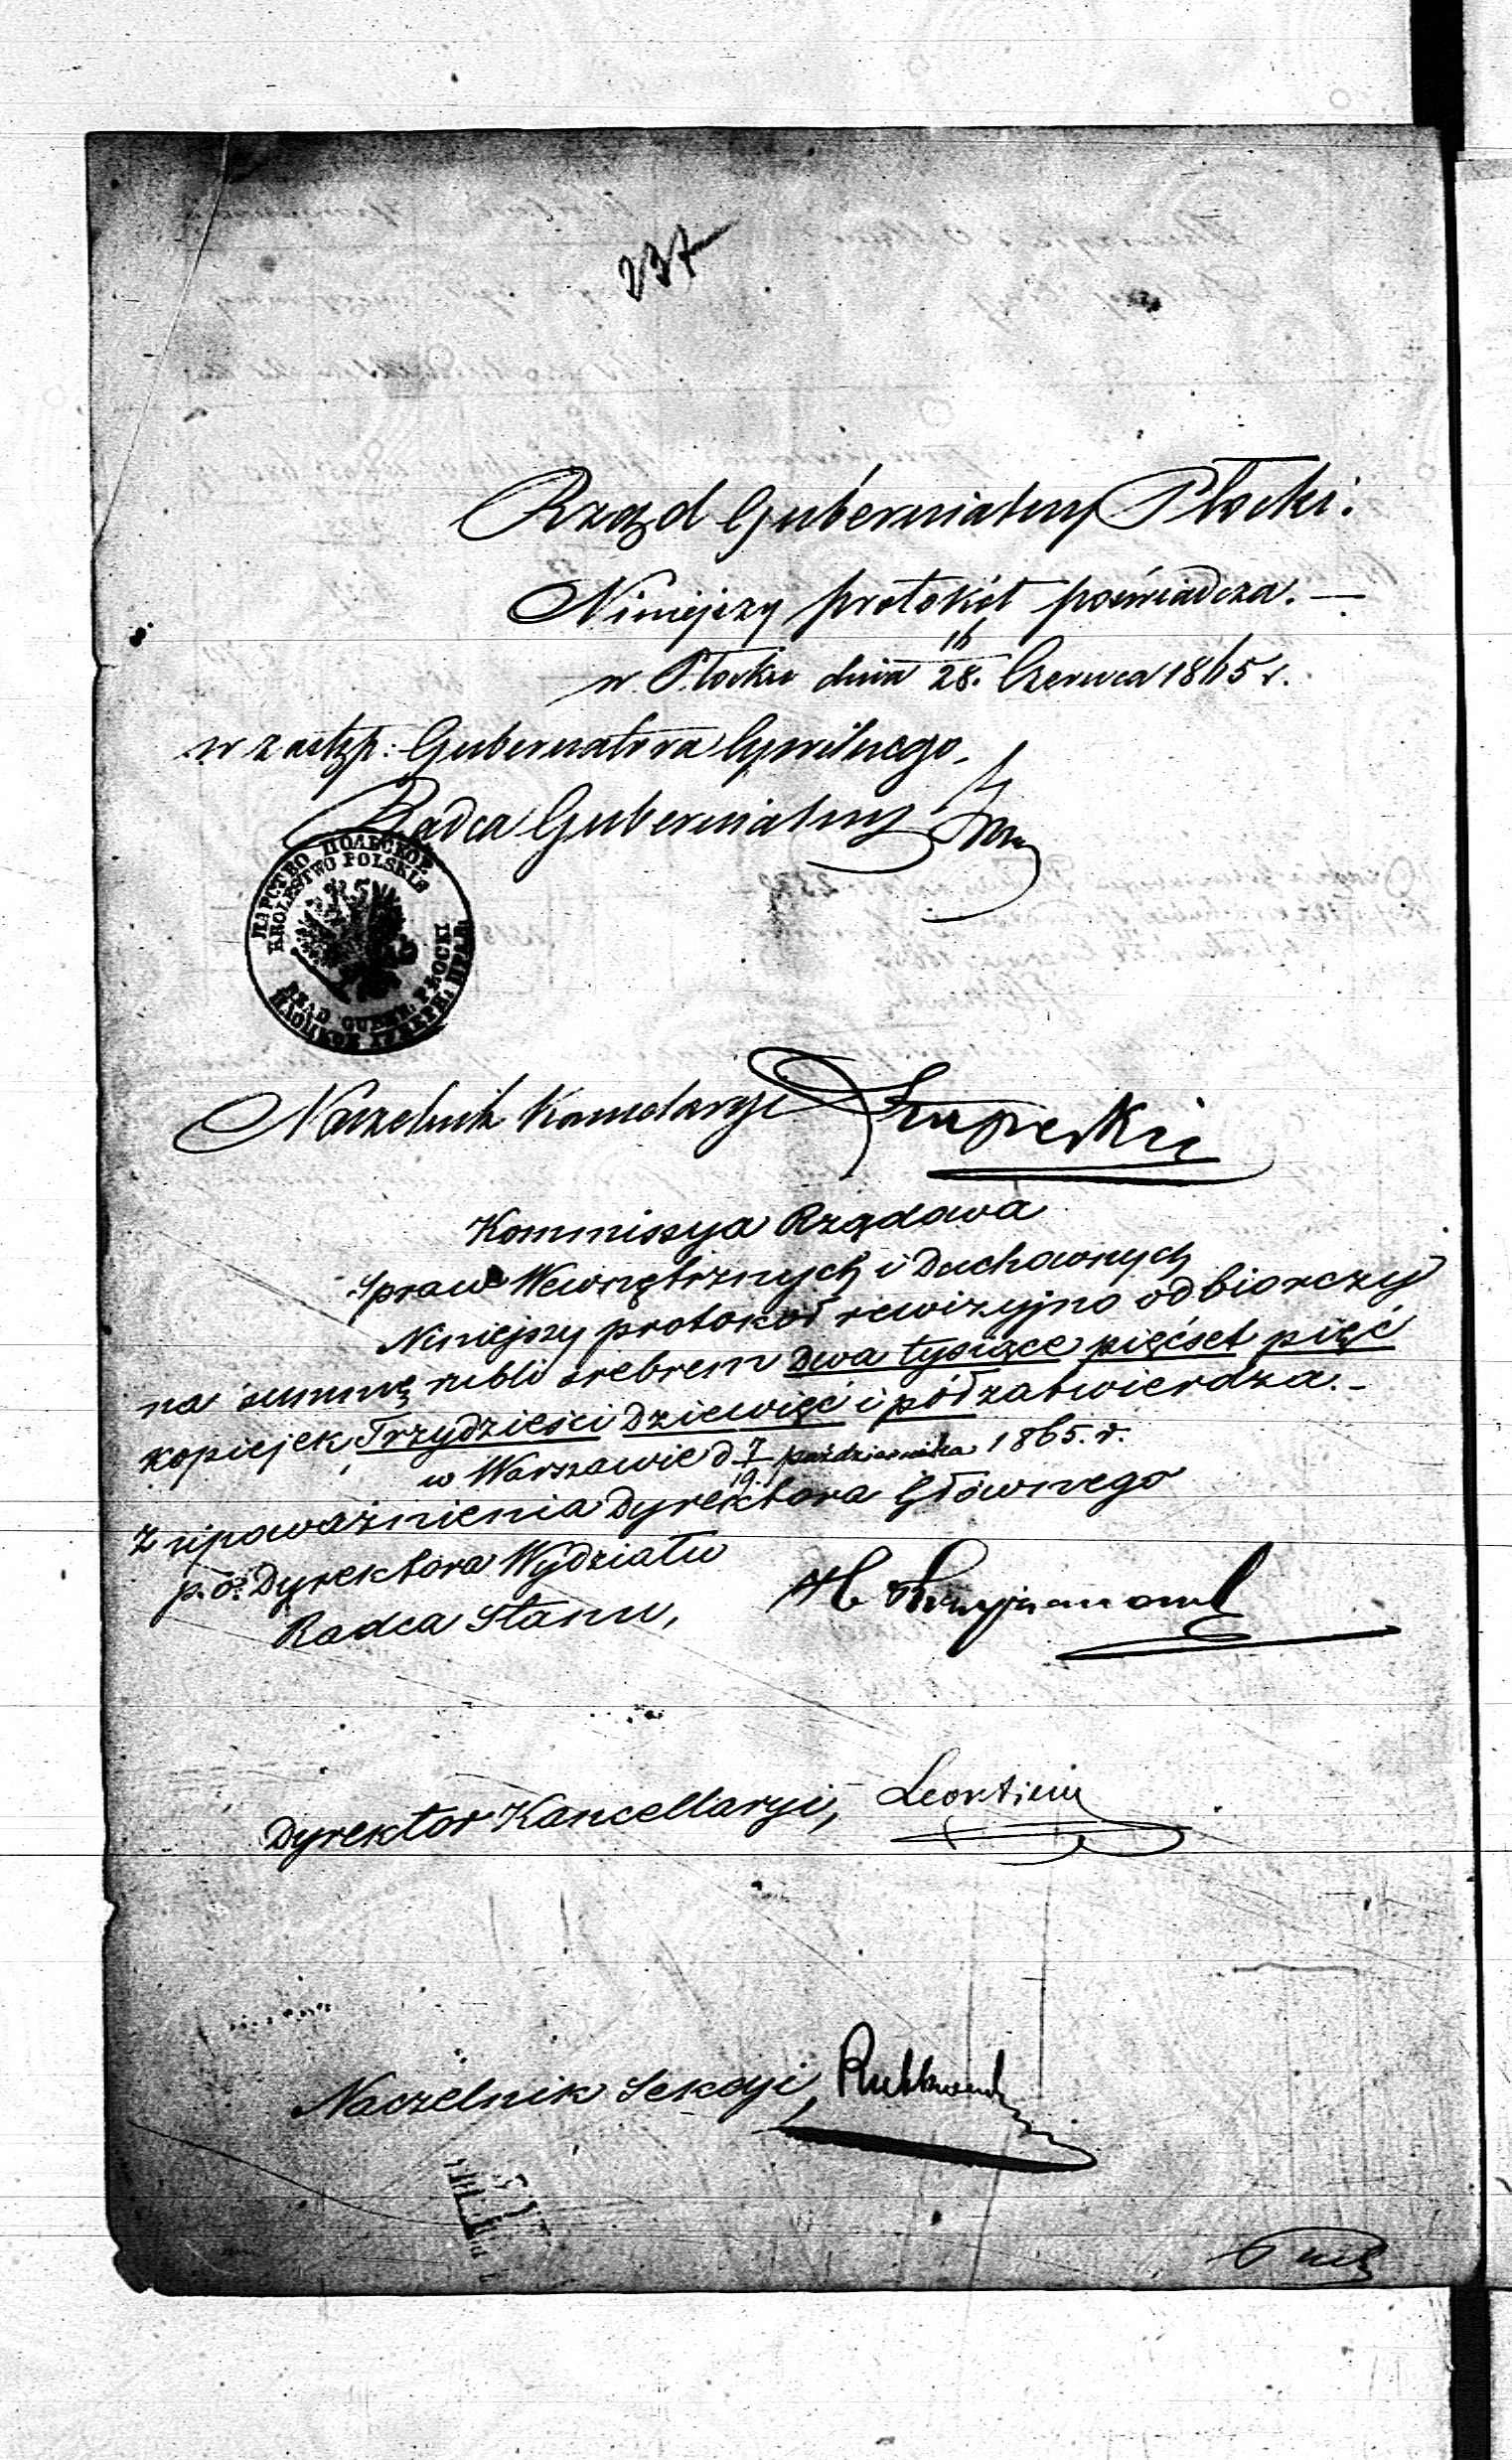 237
Rząd Gubernialny Płocki.
Niniejszy protokół poświadcza. —
w Płocku dnia 16/28. Czerwca 1865 r.
w zastęp: Gubernatora Cywilnego.
Radca Gubernialny
ЦАРСТВО ПОЛЬСКОЕ
KRÓLESTWO POLSKIE
RZĄD GUBER. PŁOCKI
Naczelnik Kancelaryi
Kommissya Rządowa
Spraw Wewnętrznych i Duchownych
Niniejszy protokół rewizyjno odbiorczy
na summę rubli srebrem Dwa tysiące pięćset pięć
kopiejek Trzydzieści Dziewięć i pół zatwierdza. –
w Warszawie d 7/19 października 1865. r.
Z upoważnienia Dyrektora Głównego
p. o. Dyrektora Wydziału
Radca Stanu,
Dyrektor Kancellaryi,
Naczelnik Sekcyi,